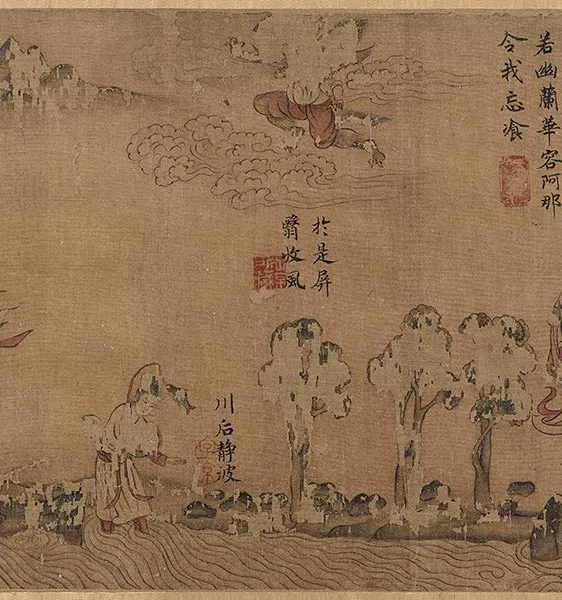 若幽蘭華容阿那
令我忘飡
於是屏
翳收風
川后静波